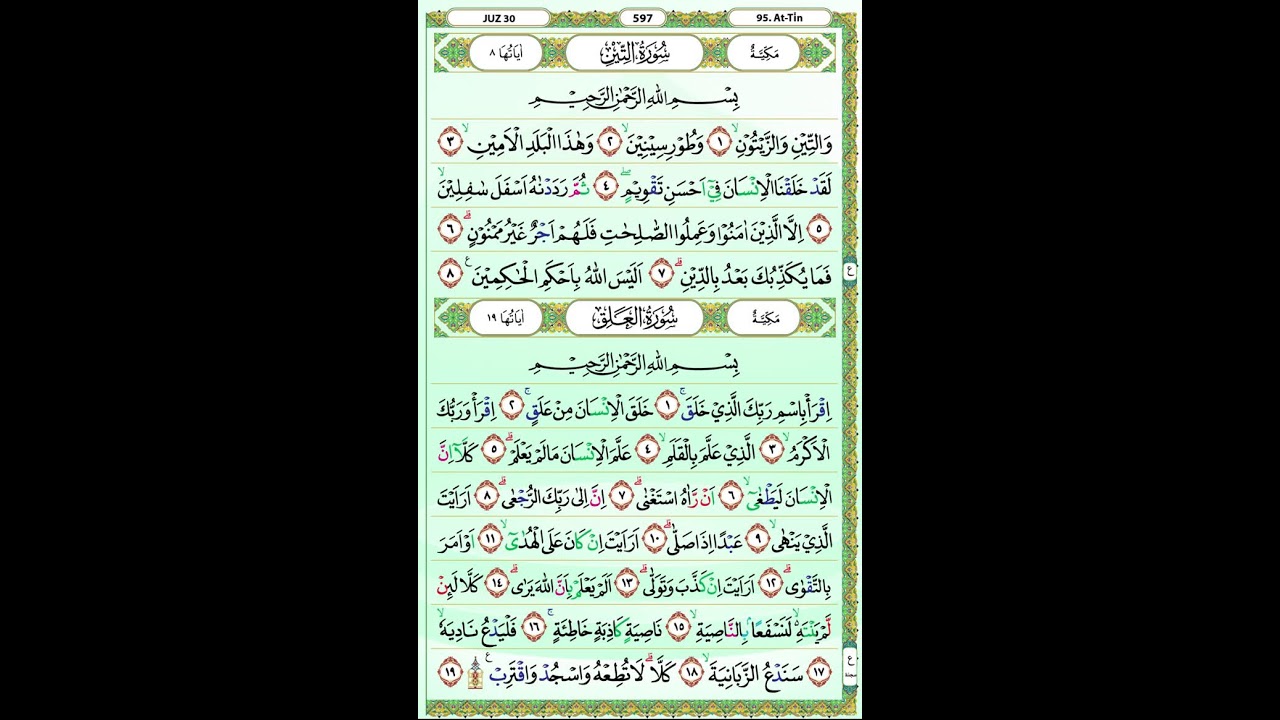 JUZ 30 597 95. At-Tin
مَكِّيَّةٌ سُوْرَةُ التِّيْنِ اٰيَاتُهَا ٨
بِسْمِ اللّٰهِ الرَّحْمٰنِ الرَّحِيْمِ
وَالتِّيْنِ وَالزَّيْتُوْنِۙ ١ وَطُوْرِ سِيْنِيْنَۙ ٢ وَهٰذَا الْبَلَدِ الْاَمِيْنِۙ ٣
لَقَدْ خَلَقْنَا الْاِنْسَانَ فِيْٓ اَحْسَنِ تَقْوِيْمٍۖ ٤ ثُمَّ رَدَدْنٰهُ اَسْفَلَ سٰفِلِيْنَۙ
٥ اِلَّا الَّذِيْنَ اٰمَنُوْا وَعَمِلُوا الصّٰلِحٰتِ فَلَهُمْ اَجْرٌ غَيْرُ مَمْنُوْنٍۗ ٦
فَمَا يُكَذِّبُكَ بَعْدُ بِالدِّيْنِۗ ٧ اَلَيْسَ اللّٰهُ بِاَحْكَمِ الْحٰكِمِيْنَ ࣖ ٨
ع
مَكِّيَّةٌ سُوْرَةُ الْعَلَقِ اٰيَاتُهَا ١٩
بِسْمِ اللّٰهِ الرَّحْمٰنِ الرَّحِيْمِ
اِقْرَأْ بِاسْمِ رَبِّكَ الَّذِيْ خَلَقَۚ ١ خَلَقَ الْاِنْسَانَ مِنْ عَلَقٍۚ ٢ اِقْرَأْ وَرَبُّكَ
الْاَكْرَمُۙ ٣ الَّذِيْ عَلَّمَ بِالْقَلَمِۙ ٤ عَلَّمَ الْاِنْسَانَ مَا لَمْ يَعْلَمْۗ ٥ كَلَّآ اِنَّ
الْاِنْسَانَ لَيَطْغٰىٓۙ ٦ اَنْ رَّاٰهُ اسْتَغْنٰىۗ ٧ اِنَّ اِلٰى رَبِّكَ الرُّجْعٰىۗ ٨ اَرَاَيْتَ
الَّذِيْ يَنْهٰىۙ ٩ عَبْدًا اِذَا صَلّٰىۗ ١٠ اَرَاَيْتَ اِنْ كَانَ عَلَى الْهُدٰىٓۙ ١١ اَوْ اَمَرَ
بِالتَّقْوٰىۗ ١٢ اَرَاَيْتَ اِنْ كَذَّبَ وَتَوَلّٰىۗ ١٣ اَلَمْ يَعْلَمْ بِاَنَّ اللّٰهَ يَرٰىۗ ١٤ كَلَّا لَىِٕنْ
لَّمْ يَنْتَهِۙ لَنَسْفَعًاۢ بِالنَّاصِيَةِۙ ١٥ نَاصِيَةٍ كَاذِبَةٍ خَاطِئَةٍۚ ١٦ فَلْيَدْعُ نَادِيَهٗۙ
١٧ سَنَدْعُ الزَّبَانِيَةَۙ ١٨ كَلَّاۗ لَا تُطِعْهُ وَاسْجُدْ وَاقْتَرِبْ ۩ ࣖ ١٩
ع
سجدة